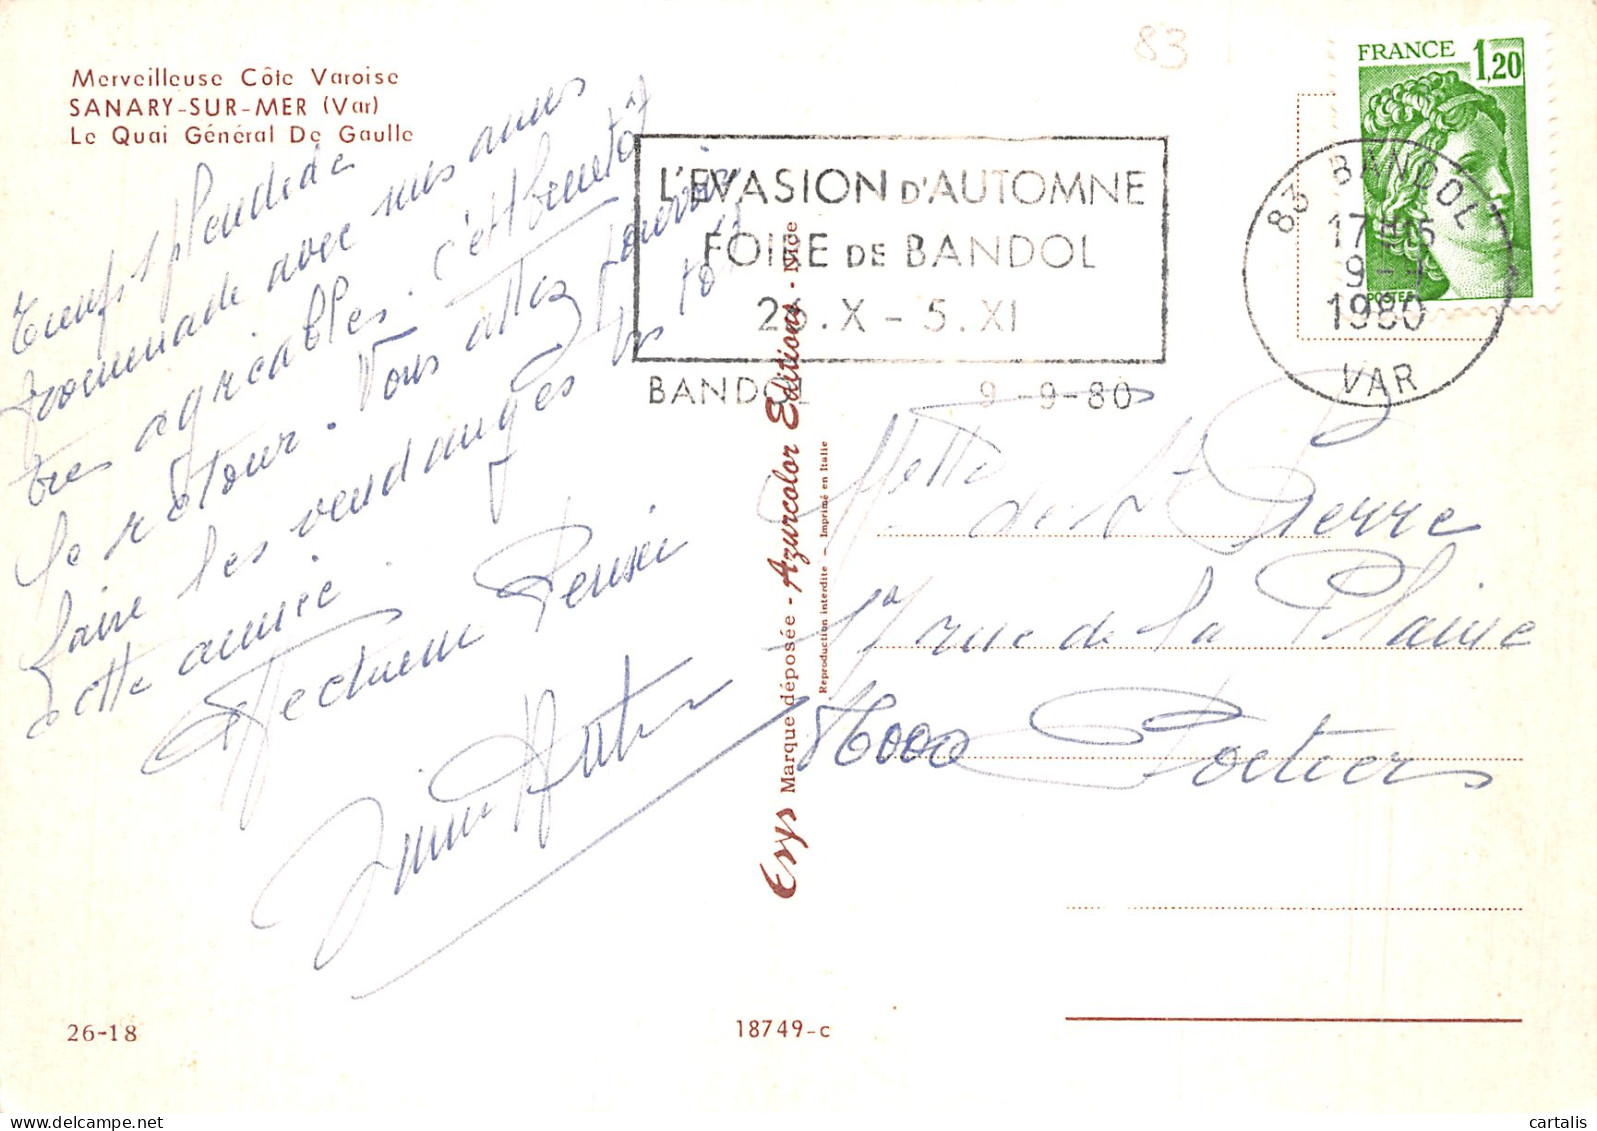 Merveilleuse Côte Varoise
SANARY-SUR-MER (Var)
Le Quai Général De Gaulle
83
FRANCE 1,20
POSTES
83 BANDOL
17H15
9-9
1980
VAR
L'EVASION D'AUTOMNE
FOIRE DE BANDOL
26.X - 5.XI
BANDOL 9-9-80
splendide
promenade avec mes amies
très agréables. c'est bientôt
le retour. Vous allez pouvoir
faire les vendanges
cette année.
Affectueuse Pensée
Mette de St Pierre
rue de la Plaine
86000 Poitiers
Esys Marque déposée - Azurcolor Editions - Nice
Reproduction interdite - Imprimé en Italie
26-18
18749-c
cartalis